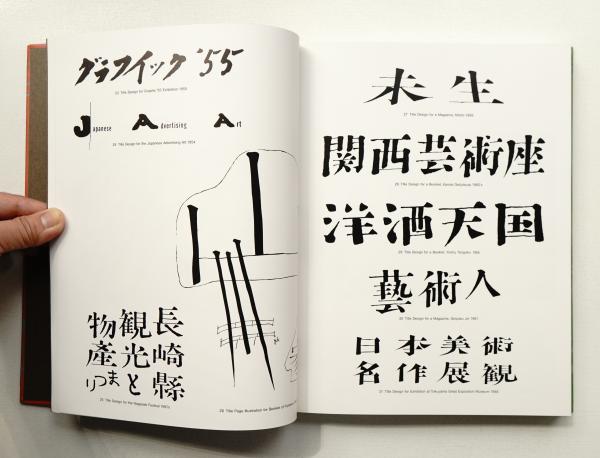 グラフイック '55
23 Title Design for Graphic '55 Exhibition 1955
Japanese Advertising Art
24 Title Design for the Japanese Advertising Art 1954
長崎縣
観光と
物産
まつり
25 Title Design for the Nagasaki Festival 1950's
26 Title Page Illustration for
未生
27 Title Design for a Magazine, Mishō 1955
関西芸術座
28 Title Design for a Booklet, Kansai Geijutsuza 1950's
洋酒天国
29 Title Design for a Booklet, Yōshu Tengoku 1956
藝術人
30 Title Design for a Magazine, Geijutsu Jin 1951
日本美術
名作展観
31 Title Design for Exhibition at Tokushima Great Exposition Museum 1958